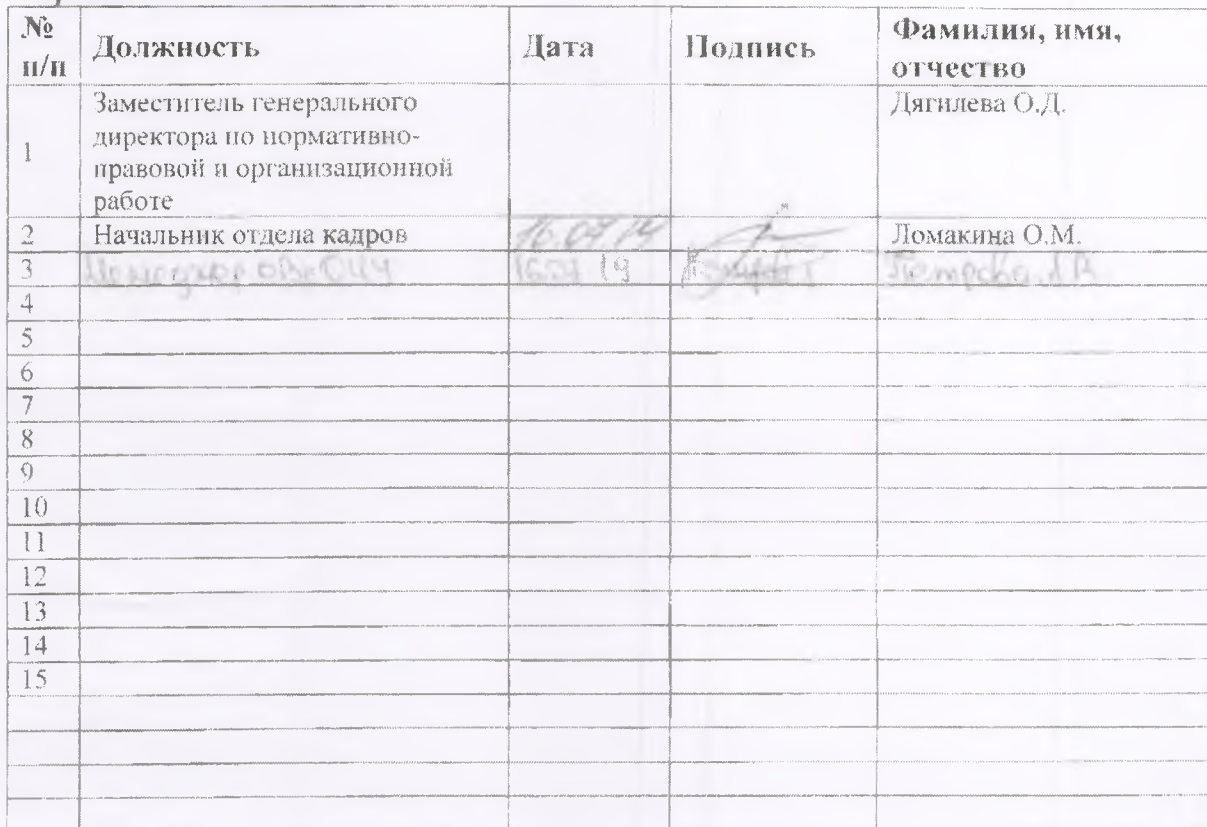 № п/п Должность Дата Подпись Фамилия, имя, отчество
1 Заместитель генерального директора по нормативно-правовой и организационной работе Дягилева О.Д.
2 Начальник отдела кадров Ломакина О.М.
3 Менеджер
4
5
6
7
8
9
10
11
12
13
14
15